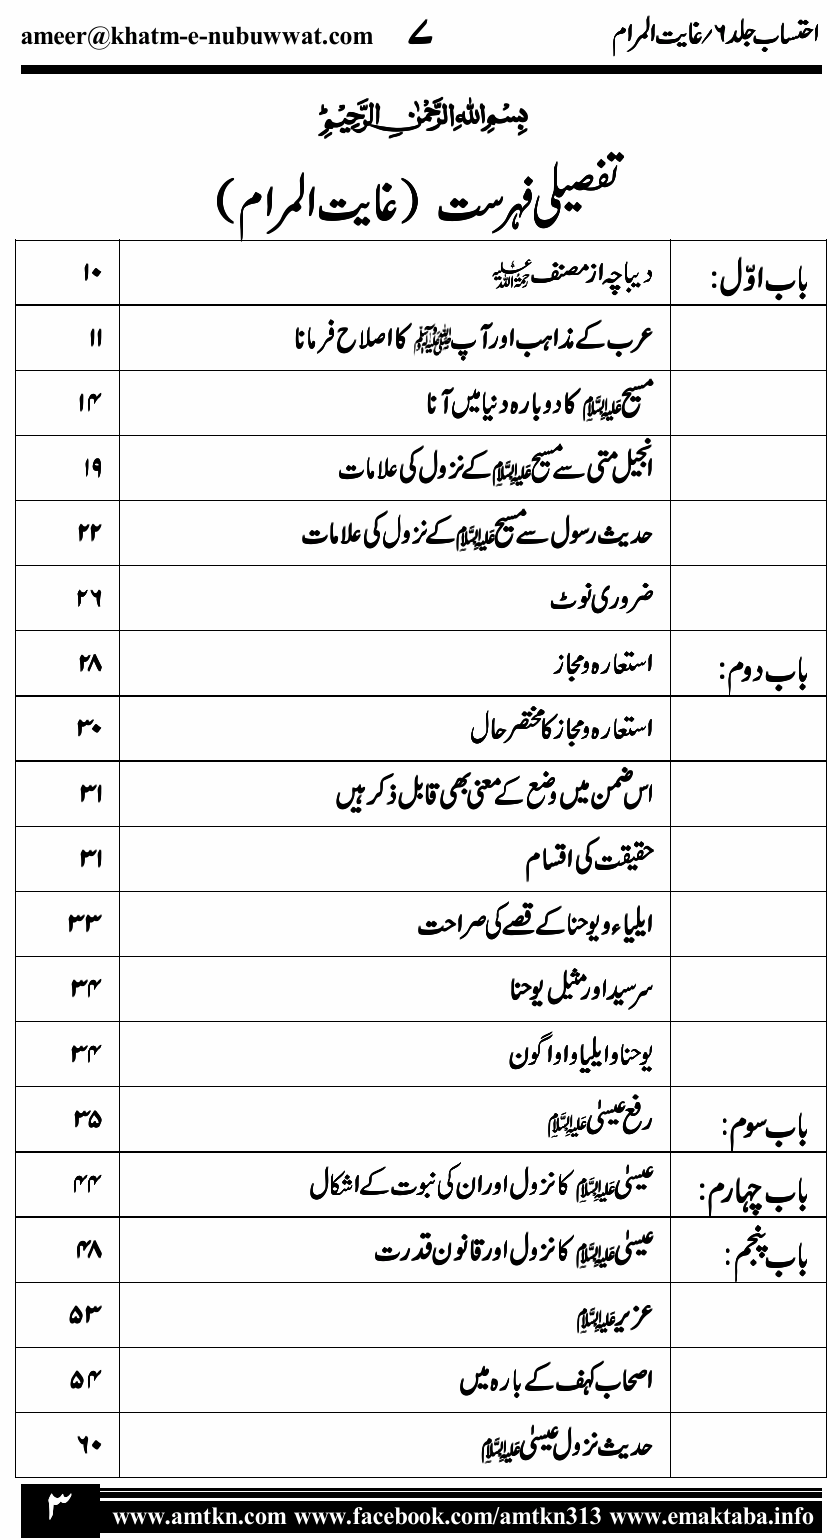 احتساب جلد ۶/غایت المرام ۷ ameer@khatm-e-nubuwwat.com
بِسْمِ اللهِ الرَّحْمٰنِ الرَّحِيْمِ
تفصیلی فہرست (غایت المرام)
باب اوّل: دیباچہ از مصنف رحمۃ اللہ علیہ ۱۰
عرب کے مذاہب اور آپ ﷺ کا اصلاح فرمانا ۱۱
مسیح علیہ السلام کا دوبارہ دنیا میں آنا ۱۴
انجیل متی سے مسیح علیہ السلام کے نزول کی علامات ۱۹
حدیث رسول سے مسیح علیہ السلام کے نزول کی علامات ۲۲
ضروری نوٹ ۲۶
باب دوم: استعارہ و مجاز ۲۸
استعارہ و مجاز کا مختصر حال ۳۰
اس ضمن میں وضع کے معنی بھی قابل ذکر ہیں ۳۱
حقیقت کی اقسام ۳۱
ایلیاء و یوحنا کے قصے کی صراحت ۳۳
سرسید اور مثیل یوحنا ۳۴
یوحنا و ایلیا و اواگون ۳۴
باب سوم: رفع عیسیٰ علیہ السلام ۳۵
باب چہارم: عیسیٰ علیہ السلام کا نزول اور ان کی نبوت کے اشکال ۴۴
باب پنجم: عیسیٰ علیہ السلام کا نزول اور قانون قدرت ۴۸
عزیر علیہ السلام ۵۳
اصحاب کہف کے بارہ میں ۵۴
حدیث نزول عیسیٰ علیہ السلام ۶۰
۳ www.amtkn.com www.facebook.com/amtkn313 www.emaktaba.info